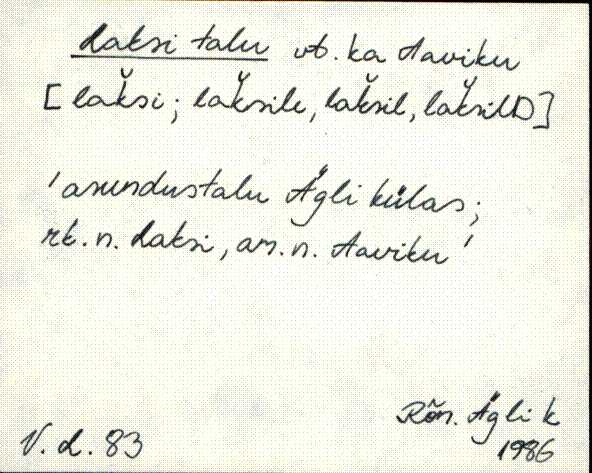 Laksi talu vt. ka Aaviku
[lak̆si; lak̆sile, lak̆sil, lak̆silD]
'asundustalu Ägli külas;
rk. n. Laksi, am. n. Aaviku'
Rõn. Ägli k
V. L. 83
1986